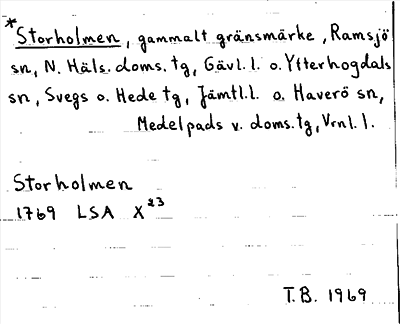 *Storholmen, gammalt gränsmärke, Ramsjö
sn, N. Häls. doms. tg, Gävl. l. o. Ytterhogdals
sn, Svegs o. Hede tg, Jämtl. l. o. Haverö sn,
Medelpads v. doms. tg, Vrnl. l.
Storholmen
1769 LSA X23
T.B. 1969